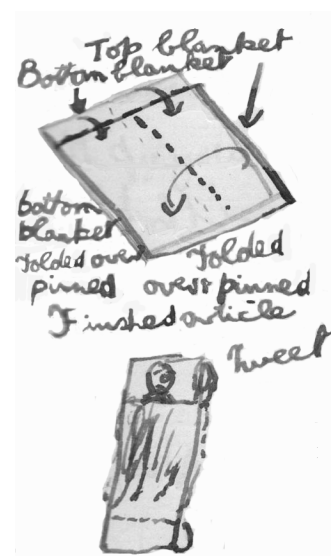 Top blanket
Bottom blanket
bottom
blanket
Folded over
pinned
Folded
over & pinned
Finshed article
Tweet